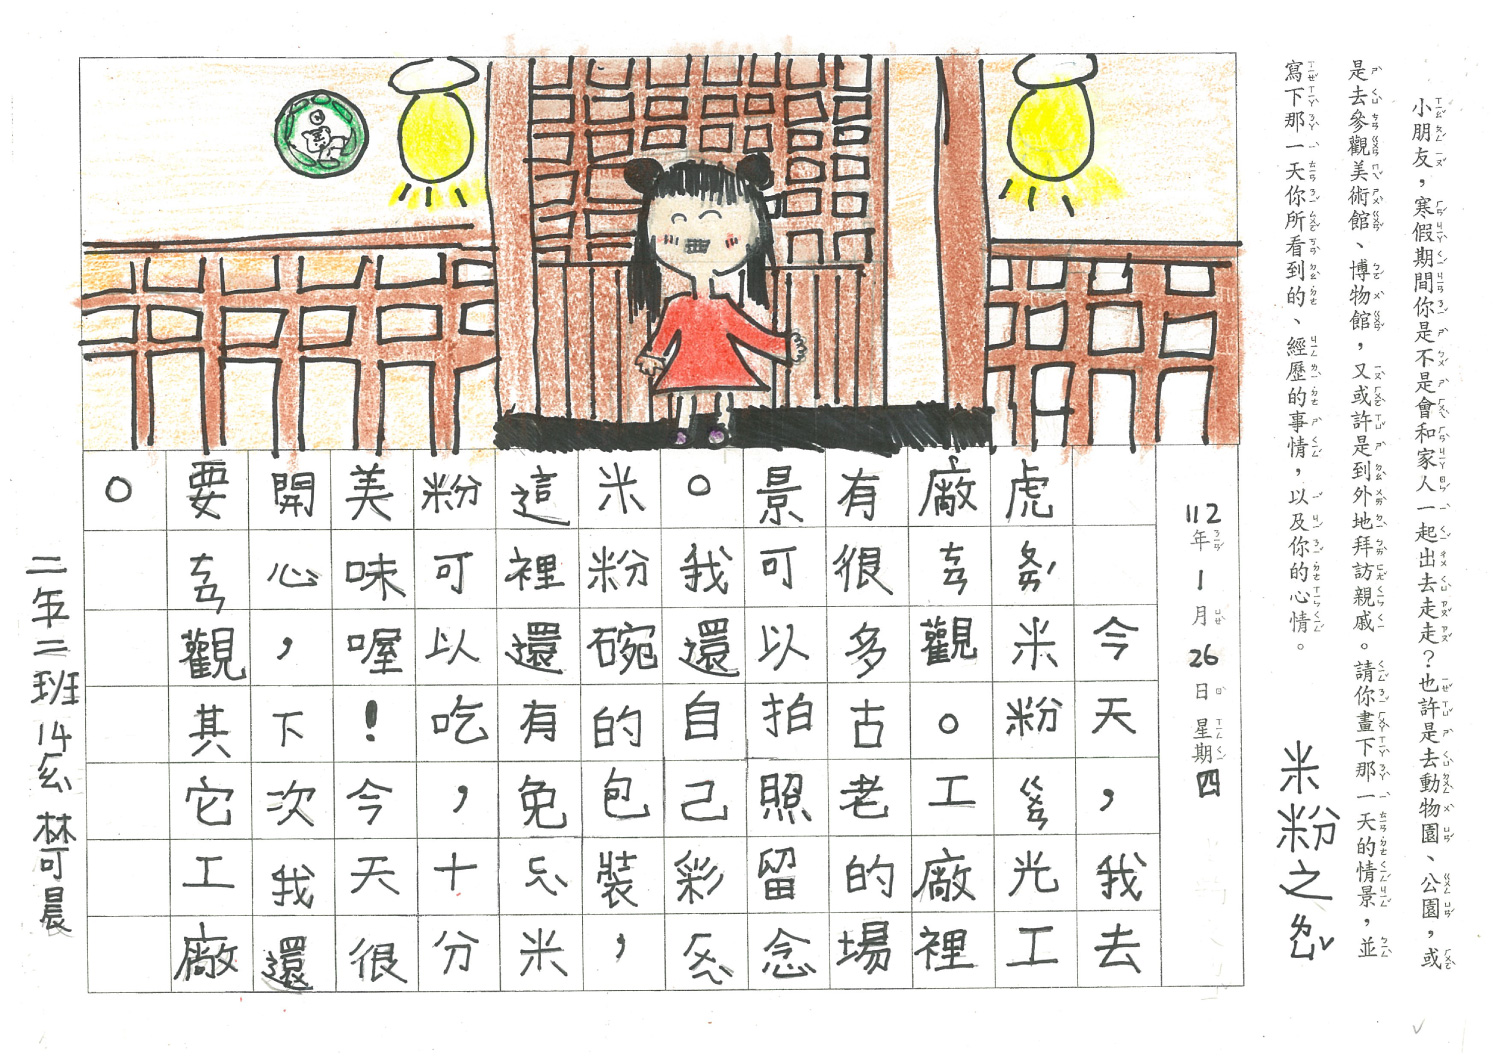 小朋友，寒假期間你是不是會和家人一起出去走走？也許是去動物園、公園，或
是去參觀美術館、博物館，又或許是到外地拜訪親戚。請你畫下那一天的情景，並
寫下那一天你所看到的、經歷的事情，以及你的心情。
米粉之ㄌㄩˇ
112年1月26日星期四
今天，我去
虎ㄆㄞˊ米粉ㄍㄨㄢ光工
廠ㄘㄢ觀。工廠裡
有很多古老的場
景可以拍照留念
。我還自己彩ㄏㄨㄟˋ
米粉碗的包裝，
這裡還有免ㄈㄟˋ米
粉可以吃，十分
美味喔！今天很
開心，下次我還
要ㄘㄢ觀其它工廠
。
二年二班14ㄏㄠˋ林可晨